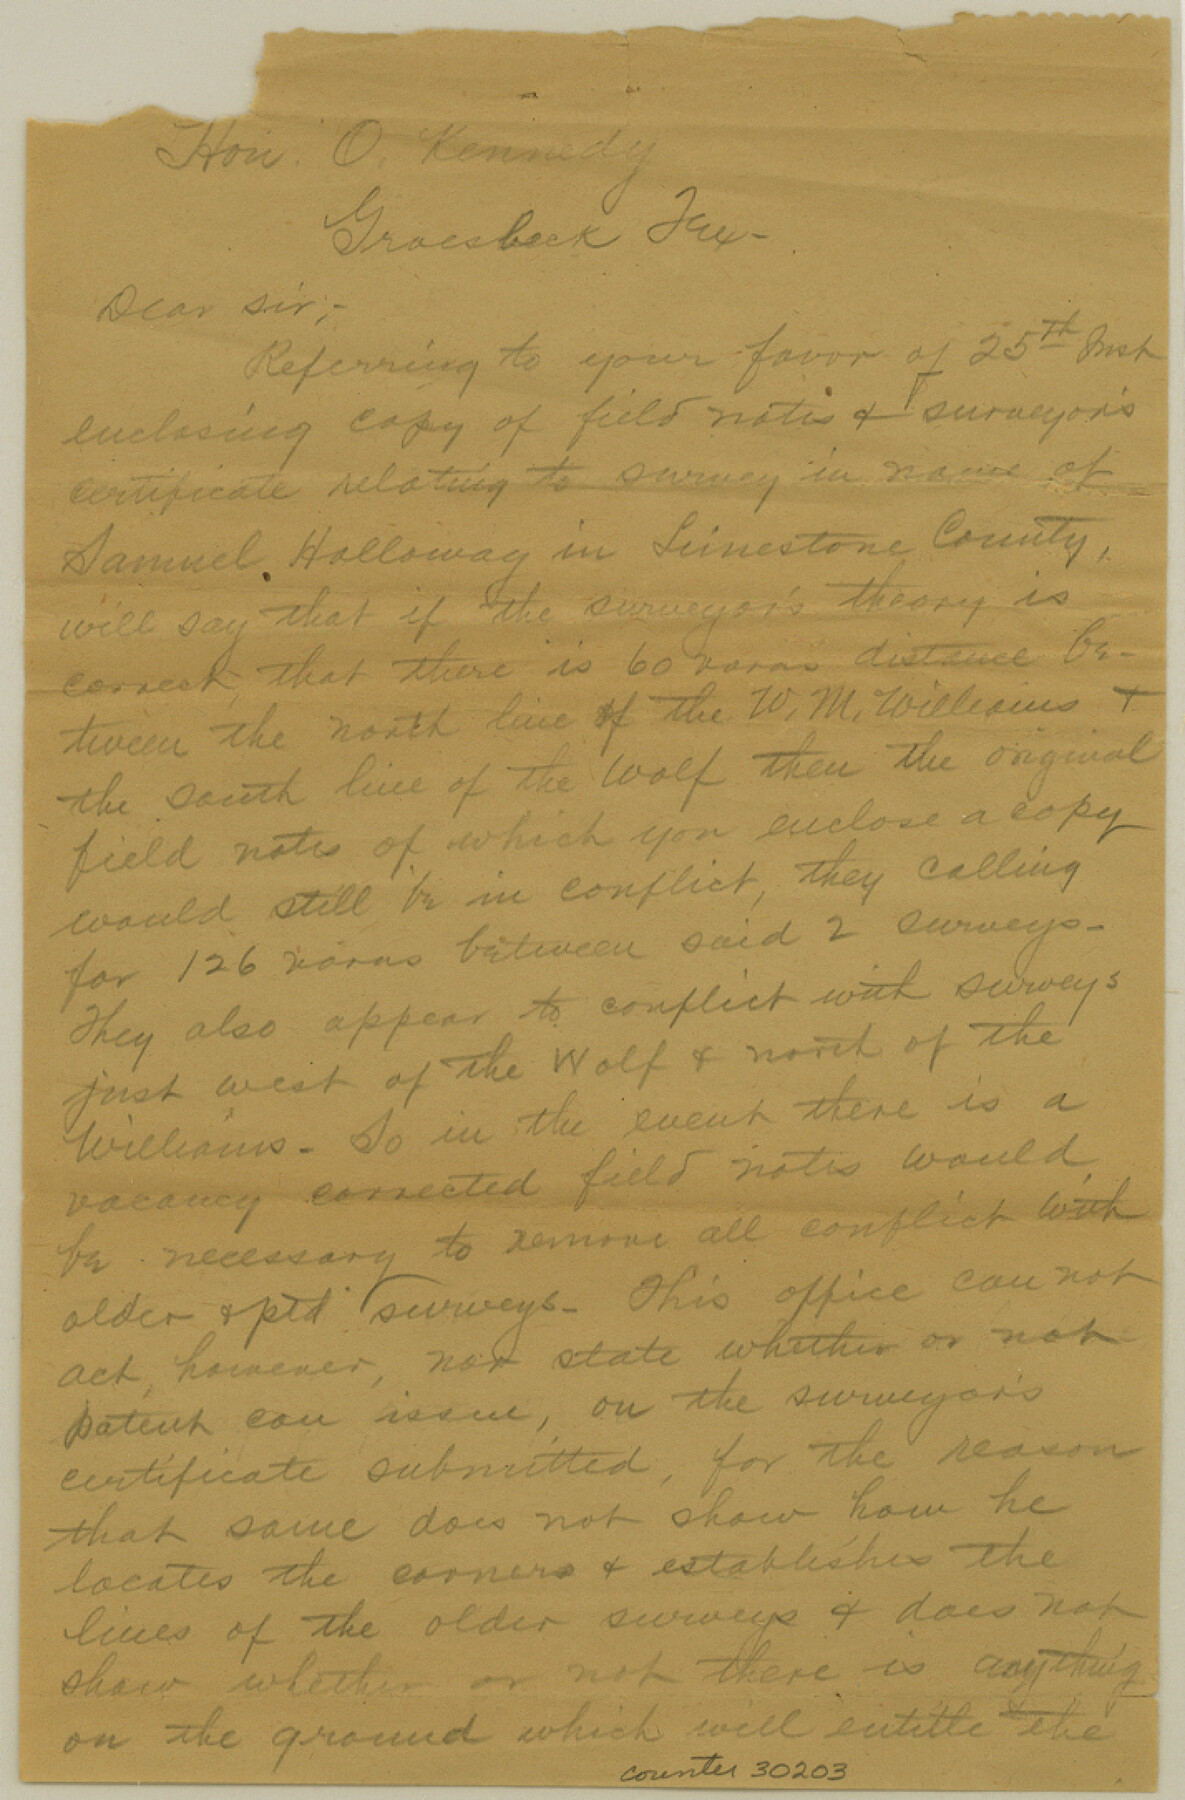 Hon. O. Kennedy
Groesbeck Tex-
Dear Sir;-
Referring to your favor of 25th Inst
enclosing copy of field notes & surveyor's
certificate relating to survey in name of
Samuel Holloway in Limestone County,
will say that if the surveyor's theory is
correct, that there is 60 varas distance be-
tween the north line of the W. M. Williams &
the south line of the Wolf then the original
field notes of which you enclose a copy
would still be in conflict, they calling
for 126 varas between said 2 surveys-
They also appear to conflict with surveys
just west of the Wolf & north of the
Williams- So in the event there is a
vacancy corrected field notes would
be necessary to remove all conflict with
older & ptd surveys- This office can not
act, however, nor state whether or not
patent can issue, on the surveyor's
certificate submitted, for the reason
that same does not show how he
locates the corners & establishes the
lines of the older surveys & does not
show whether or not there is anything
on the ground which will entitle the
counter 30203